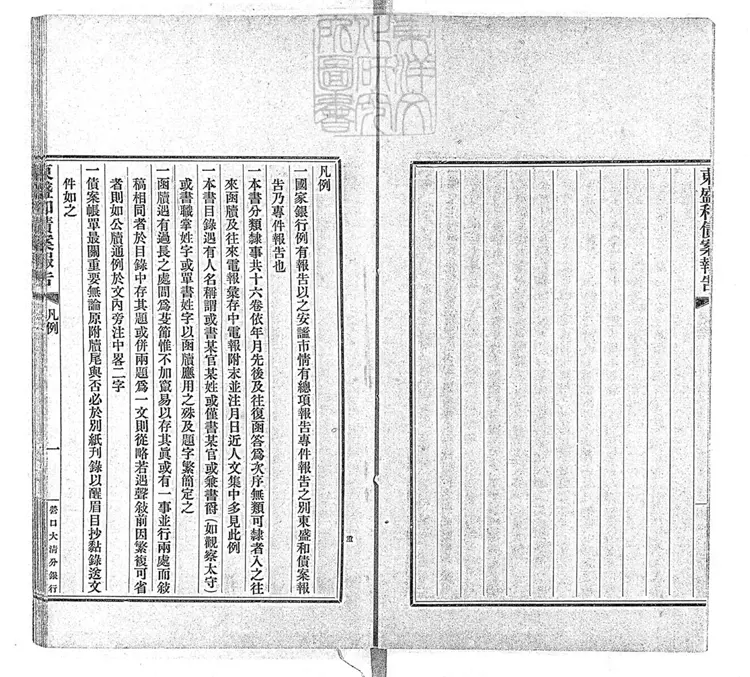 東洋文
化研究
所圖書
東盛和債案報告
凡例
一國家銀行例有報告以之安謐市情有總項報告專件報告之別東盛和債案報
告乃專件報告也
一本書分類隸事共十六卷依年月先後及往復函答爲次序無類可隸者入之往
來函牘及往來電報彙存中電報附末並注月日近人文集中多見此例
一本書目錄遇有人名稱謂或書某官某姓或僅書某官或兼書爵(如觀察太守)
或書職掌姓字或單書姓字以函牘應用之殊及題字繁簡定之
一函牘遇有過長之處間爲芟節惟不加竄易以存其眞或有一事並行兩處而敍
稿相同者於目錄中存其題或併兩題爲一文則從略若遇聲敍前因繁複可省
者則如公牘通例於文內旁注中畧二字
一債案帳單最關重要無論原附牘尾與否必於別紙刋錄以醒眉目抄黏錄送文
件如之
東盛和債案報告
凡例
一
營口大清分銀行